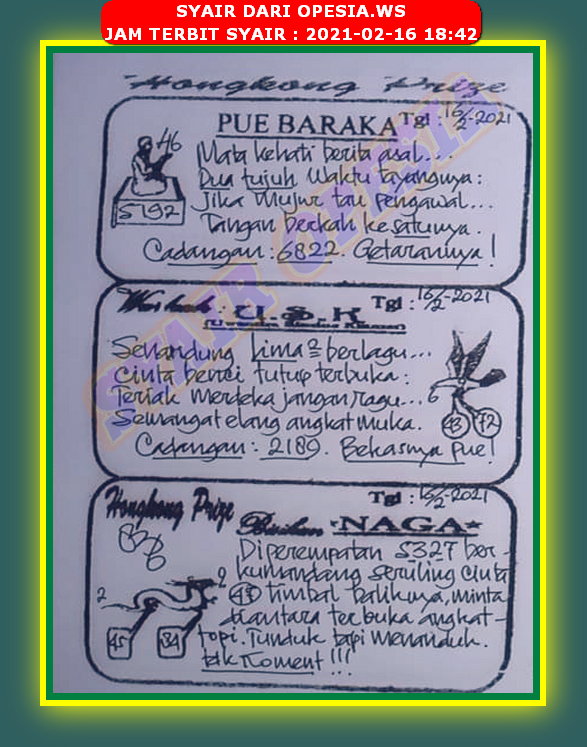 SYAIR DARI OPESIA.WS
JAM TERBIT SYAIR : 2021-02-16 18:42
Hongkong Prize
PUE BARAKA Tgl : 16/2-2021
46
5192
Mata kehati berita asal...
Dua tujuh waktu tayangnya:
Jika mujur tau pengawal...
Tangan berkah kesatunya.
Cadangan : 6822. Getarannya!
U.S.K Tgl : 16/2-2021
Senandung Lima2 berlagu...
Cinta benci tutup terbuka:
Teriak merdeka jangan ragu...
Semangat elang angkat muka.
Cadangan : 2189. Bekasnya Pue!
6
43 72
SYAIR OPESIA
Hongkong Prize Tgl : 16/2-2021
Bisikan *NAGA*
Diperempatan 5327 ber-
kumandang seruling cinta
timbal baliknya, minta
diantara terbuka angkat
topi. Tunduk tapi menanduk.
tak koment!!!
2
2
45